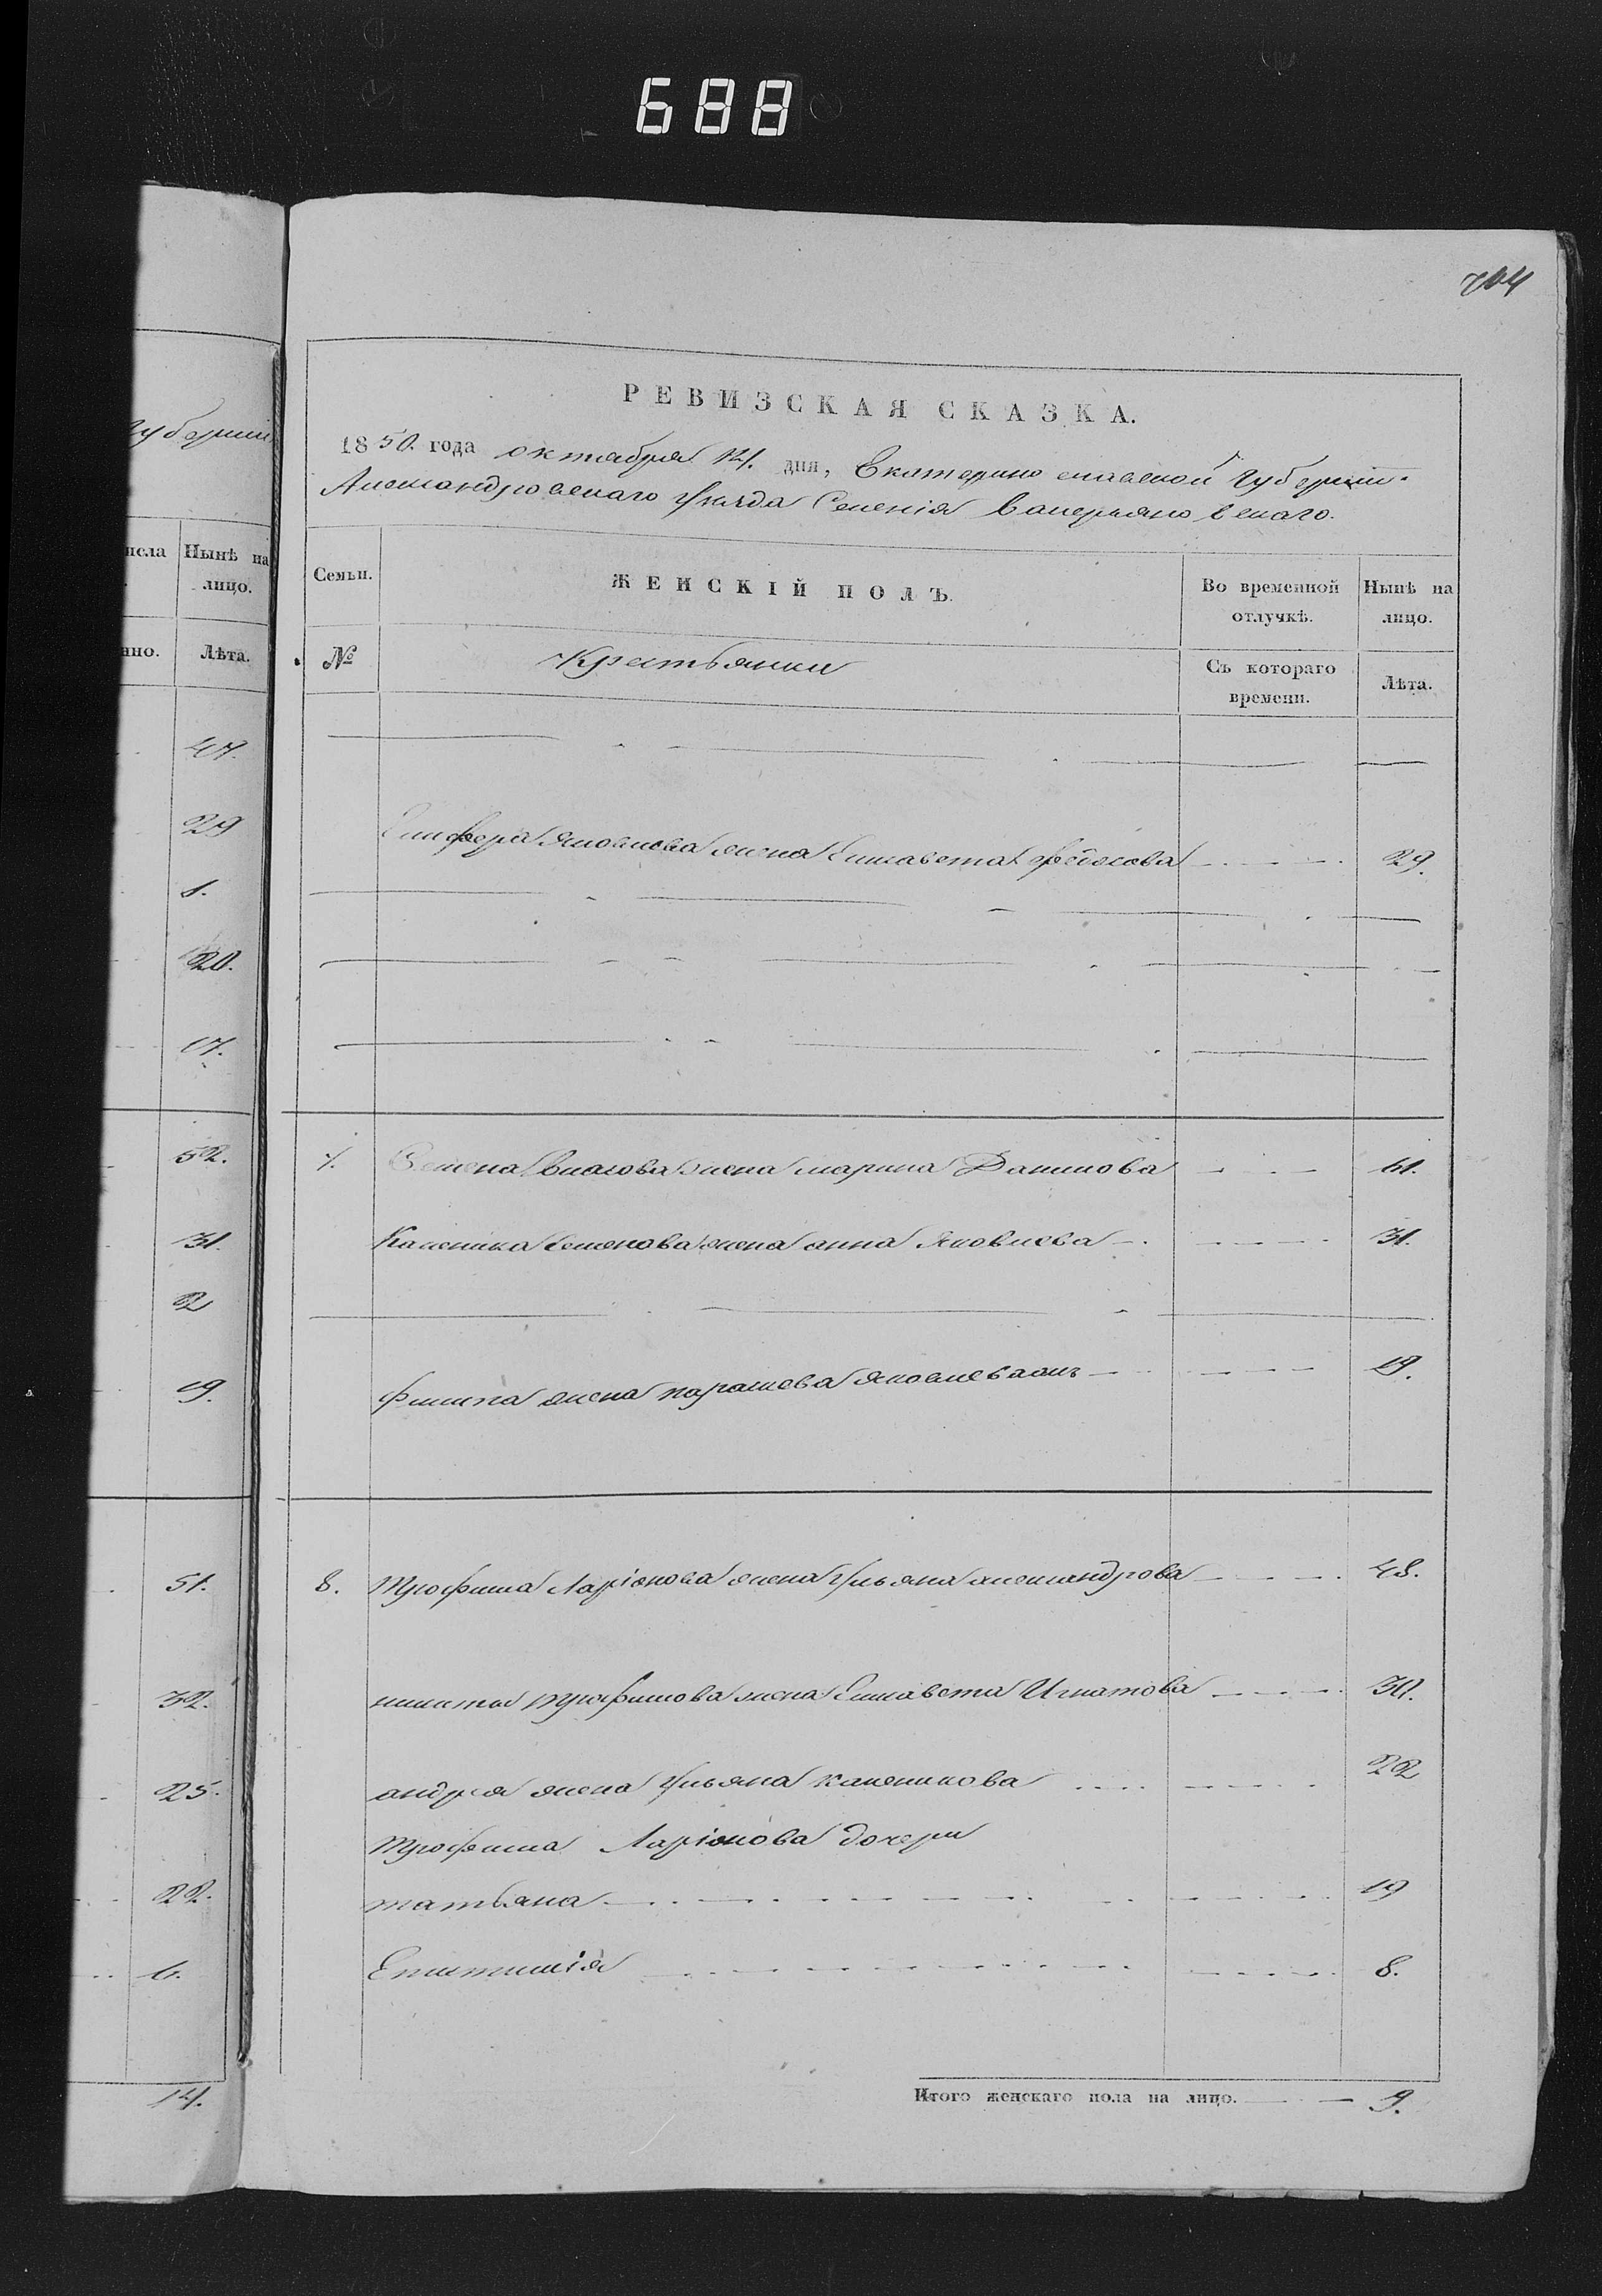 688
704
РЕВИЗСКАЯ СКАЗКА.
1850. года октября 14. дня, Екатеринославской Губерніи.
Александровскаго уѣзда Селенія Валерьяновскаго.
Семьи.
ЖЕНСКІЙ ПОЛЪ.
Во временной отлучкѣ.
Нынѣ на лицо.
№
Крестьянки
Съ котораго времени.
Лѣта.
Яковлева жена Елисавета 29.
7. Семена Власова жена марина Данилова 61.
Каленика Семенова жена анна Яковлева 31.
Филипа жена параскева Яковлева 19.
8. Трофима Ларіонова жена Ульяна александрова 48.
никиты трофимова жена Елисавета Игнатова 30.
андрея жена Ульяна каленикова 22
Трофима Ларіонова дочери
татьяна 19
8.
Итого женскаго пола на лицо. 9.
Губерніи
Нынѣ на
лицо.
Лѣта.
47.
29
1.
20.
17.
52.
31.
2
19.
51.
32.
25.
22.
6.
14.